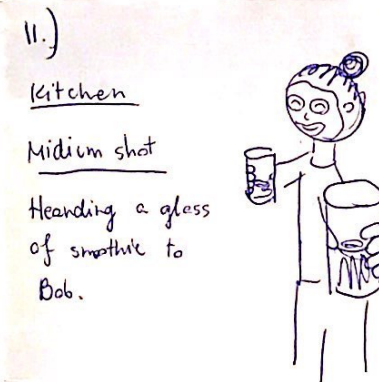 11.)
Kitchen
Midium shot
Heanding a glass
of smoothie to
Bob.